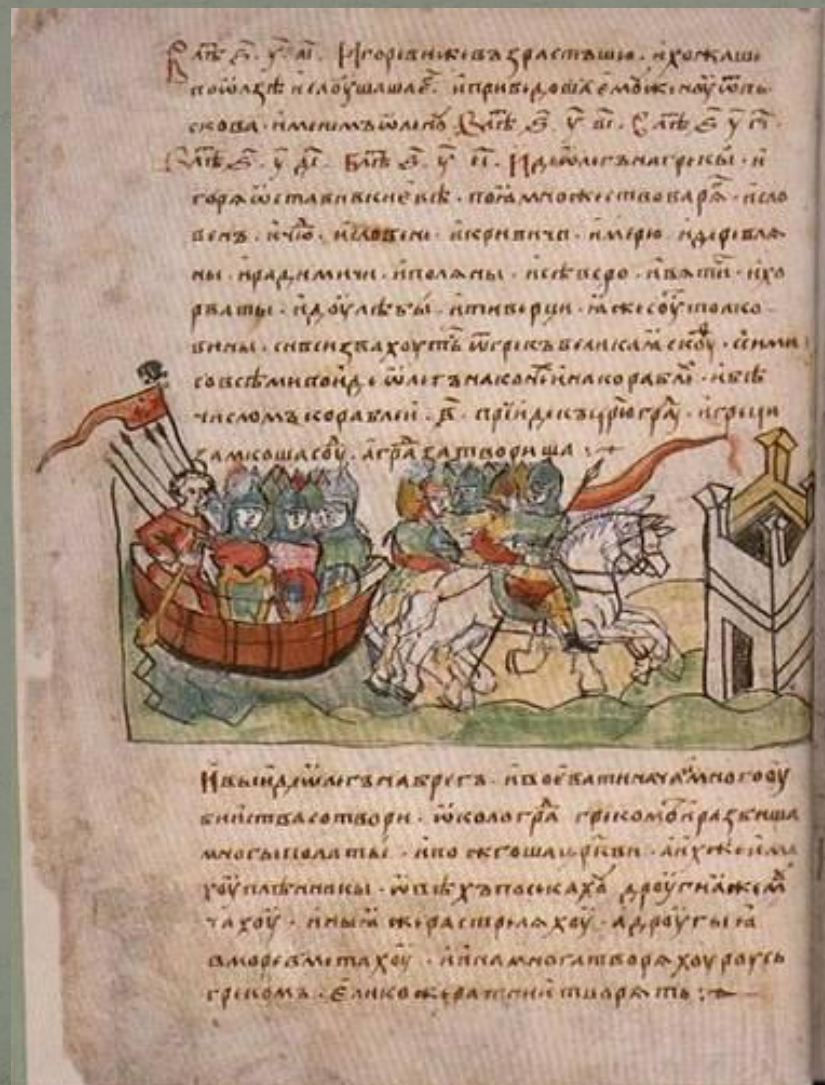 В лѣ҃ ѕ҃. у҃. аі҃. Игореви же възрастъшю. и хожаше
по ѡлзѣ и слоушаша е҃. и приведоша емоу женоу ѿ пь
скова. именемъ ѡленоу В лѣ҃ ѕ҃. у҃ ві҃. В лѣ҃ ѕ҃ у҃ гі҃.
В лѣ҃ ѕ҃. у҃ ді҃. В лѣ҃ ѕ҃. у҃ еі҃. Иде ѡлегъ на грекы. и
горѧ ѡставив киевѣ. поꙗ множество варѧ҃. и сло
венъ. и чю҃. и словени. и кривичи. и мерю. и деревлѧ
ны. и радимичи. и полѧны. и сѣверо. и вѧти҃. и хо
рваты. и доулѣбы. и тиверци. ꙗже соу҃ толко
вины. си вси звахоуть ѿ грекъ великаꙗ скоуѳ҃. с сими
со всѣми поиде ѡлегъ на конѣ и на корабле҃. и бѣ
числомъ кораблеи. в҃. прїиде къ црюгра҃. и греци
замкоша соу҃. а гра҃ затвориша
И выиде ѡлегъ на брегъ. и воевати нача. и много оу
биства сотвори. ѡколо гра҃ греком. и разбиша
многы полаты. и пожгоша церкви. а ихже има
хоу плѣнникы. ѡвѣхъ посѣкахоу дроугиꙗ же м҃
чахоу. иныꙗ же растрелѧхоу. а дроугыꙗ
в море вметахоу. и ина многа творѧхоу роусь
греком. елико же ратнии творѧть